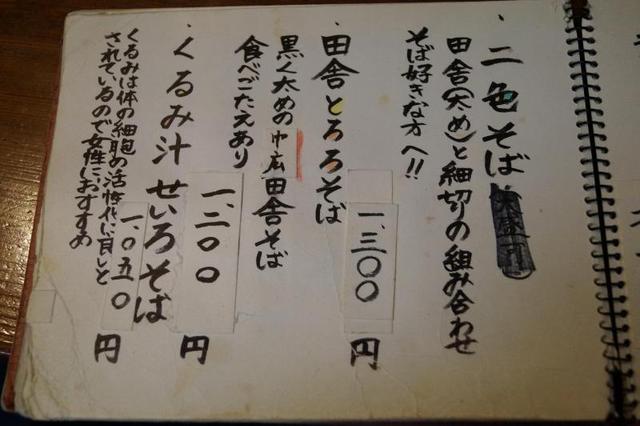 ・二色そば
田舎(太め)と細切りの組み合わせ
そば好きな方へ!!
一、三〇〇円
・田舎とろろそば
黒く太めの巾広田舎そば
食べごたえあり
一、二〇〇円
・くるみ汁せいろそば
くるみは体の細胞の活性化に良いと
されているので女性におすすめ
一、〇五〇円